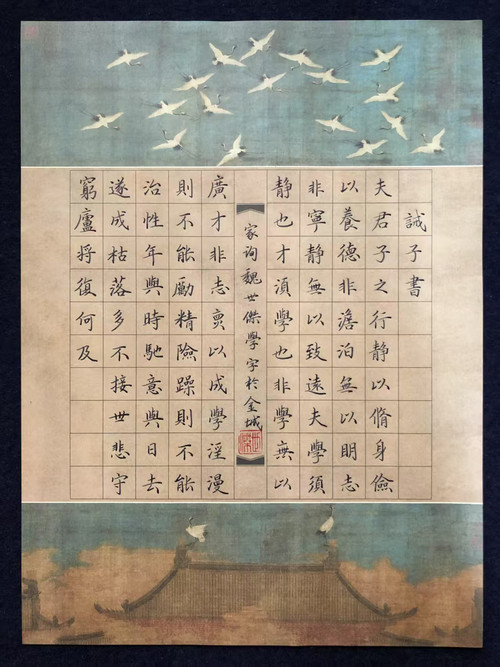 誡子書
夫君子之行静以脩身儉
以養德非澹泊無以明志
非寧静無以致遠夫學須
静也才湏學也非學無以
廣才非志無以成學淫漫
則不能勵精險躁則不能
冶性年與時馳意與日去
遂成枯落多不接世悲守
窮廬将復何及
家询魏世傑學字於金城